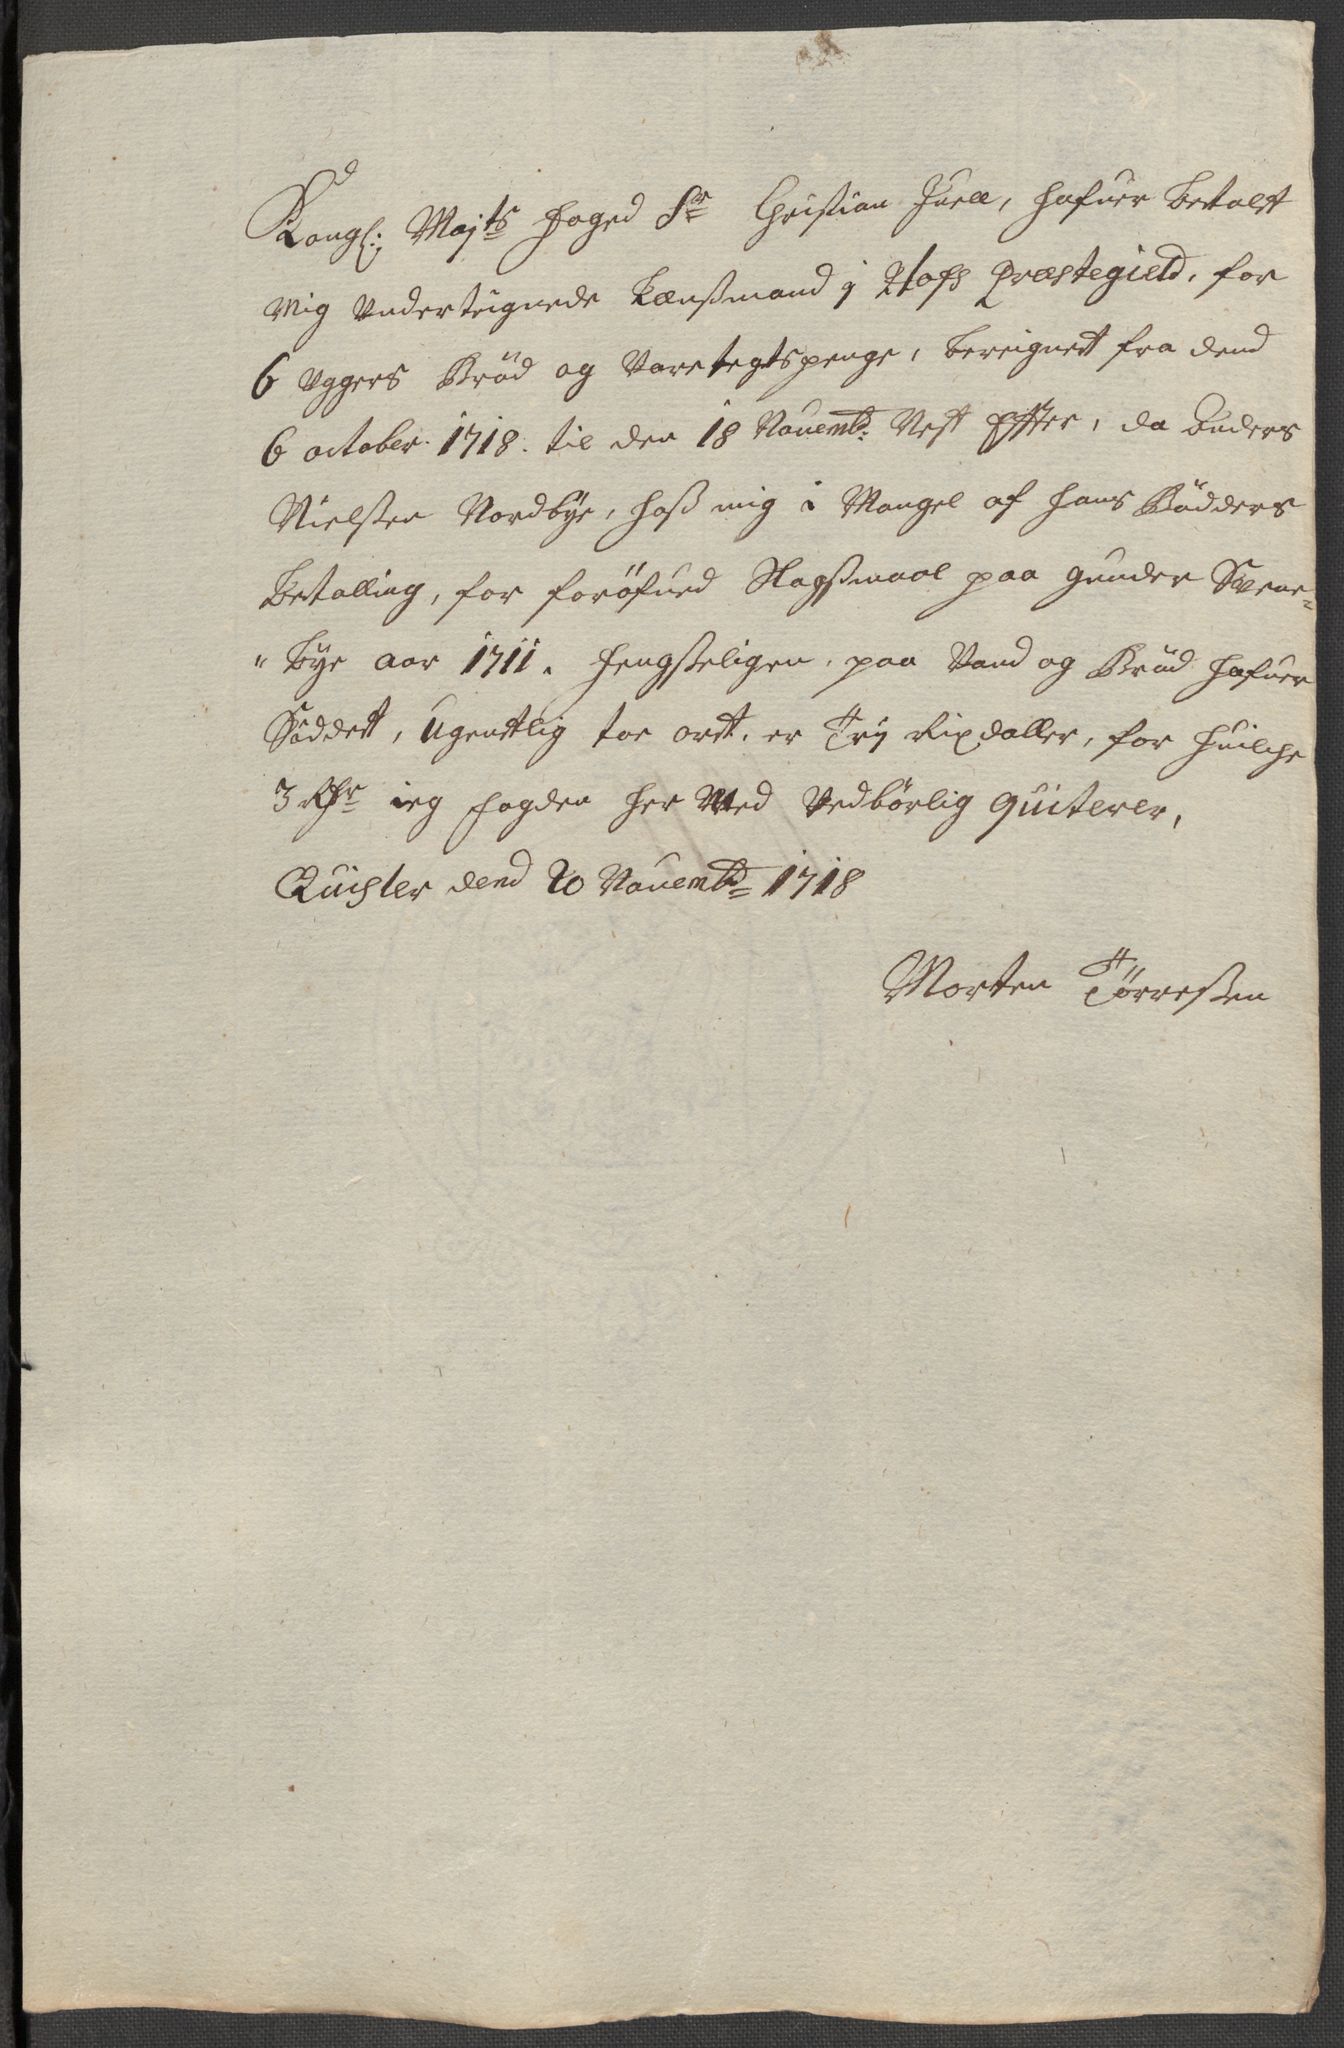 Kongl: Majts foged Sr Christian Juell, hafuer betalt
mig Underteignede Lensmand j Hofs Præstegield, for
6 Uggers Brød og Varetegtspenge, bereignet fra dend
6 october 1718. til den 18 Novembr: Nest Effter, da Anders
Nielsen Nordbye, hoß mig i Mangel af hans Bødders
betalling, for forøfued Slagsmaal paa Gunder Svene=
"bye aar 1711. fengsseligen, paa Vand og Brød hafuer
Siddet, Ugenttlig toe ort. er Trij Rixdaller, for huilche
3 Rdr ieg fogden her Med Vedbørlig quiterer,
dend 20 Novembr 1718
Morten Tørreßen